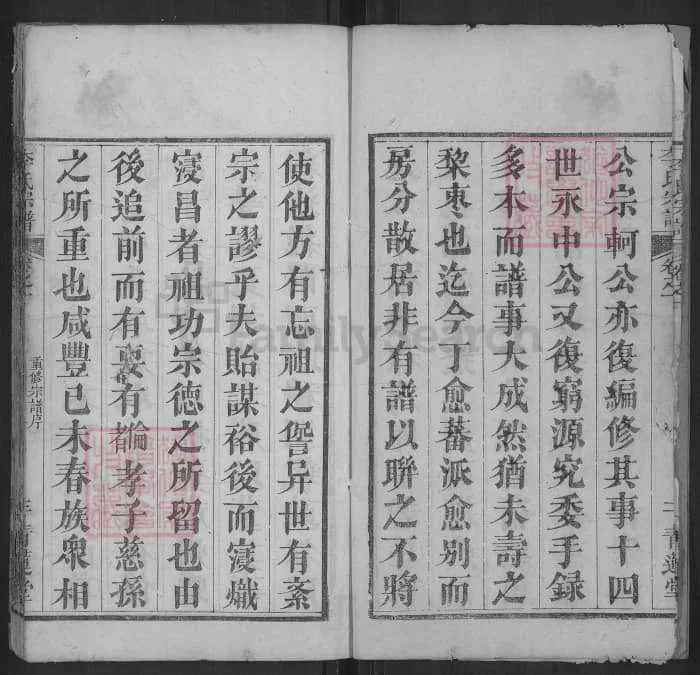 公宗軻公亦復編修其事十四
世永中公又復窮源究委手錄
多本而譜事大成然猶未壽之
棃枣也迄今丁愈蕃派愈別而
房分散居非有譜以聯之不將
李氏宗譜
卷之一
二 青蓮堂
使他方有忘祖之訾异世有紊
宗之謬乎夫貽謀裕後而寖熾
寖昌者祖功宗德之所留也由
後追前而有要有倫孝子慈孫
之所重也咸豐已未春族衆相
李氏宗譜
卷之一
重修宗譜序
三 青蓮堂
FamilySearch